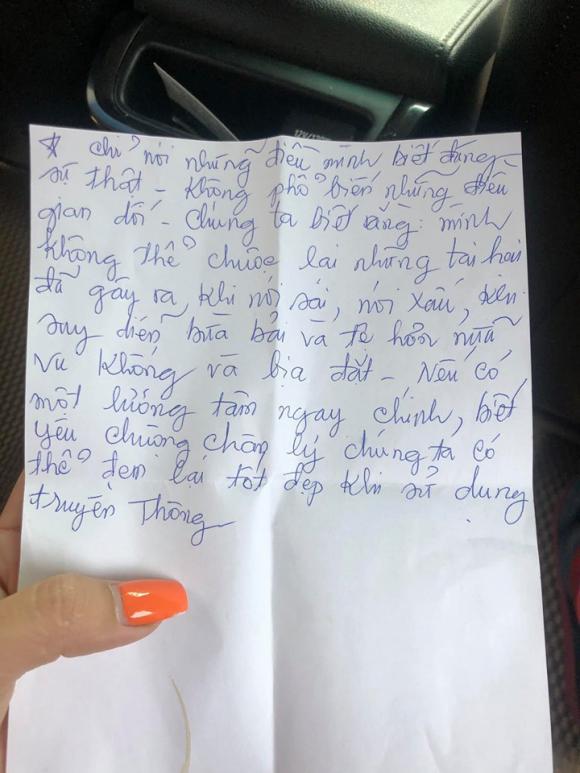 * chỉ nói những điều mình biết đúng
sự thật - không phổ biến những điều
gian dối - chúng ta biết rằng: mình
không thể chuộc lại những tai hại
đã gây ra, khi nói sai, nói xấu,
suy diễn bừa bãi và tệ hơn nữa
vu khống và bịa đặt - Nếu có
một lương tâm ngay chính, biết
yêu chuộng chân lý chúng ta có
thể đem lại tốt đẹp khi sử dụng
truyền thông